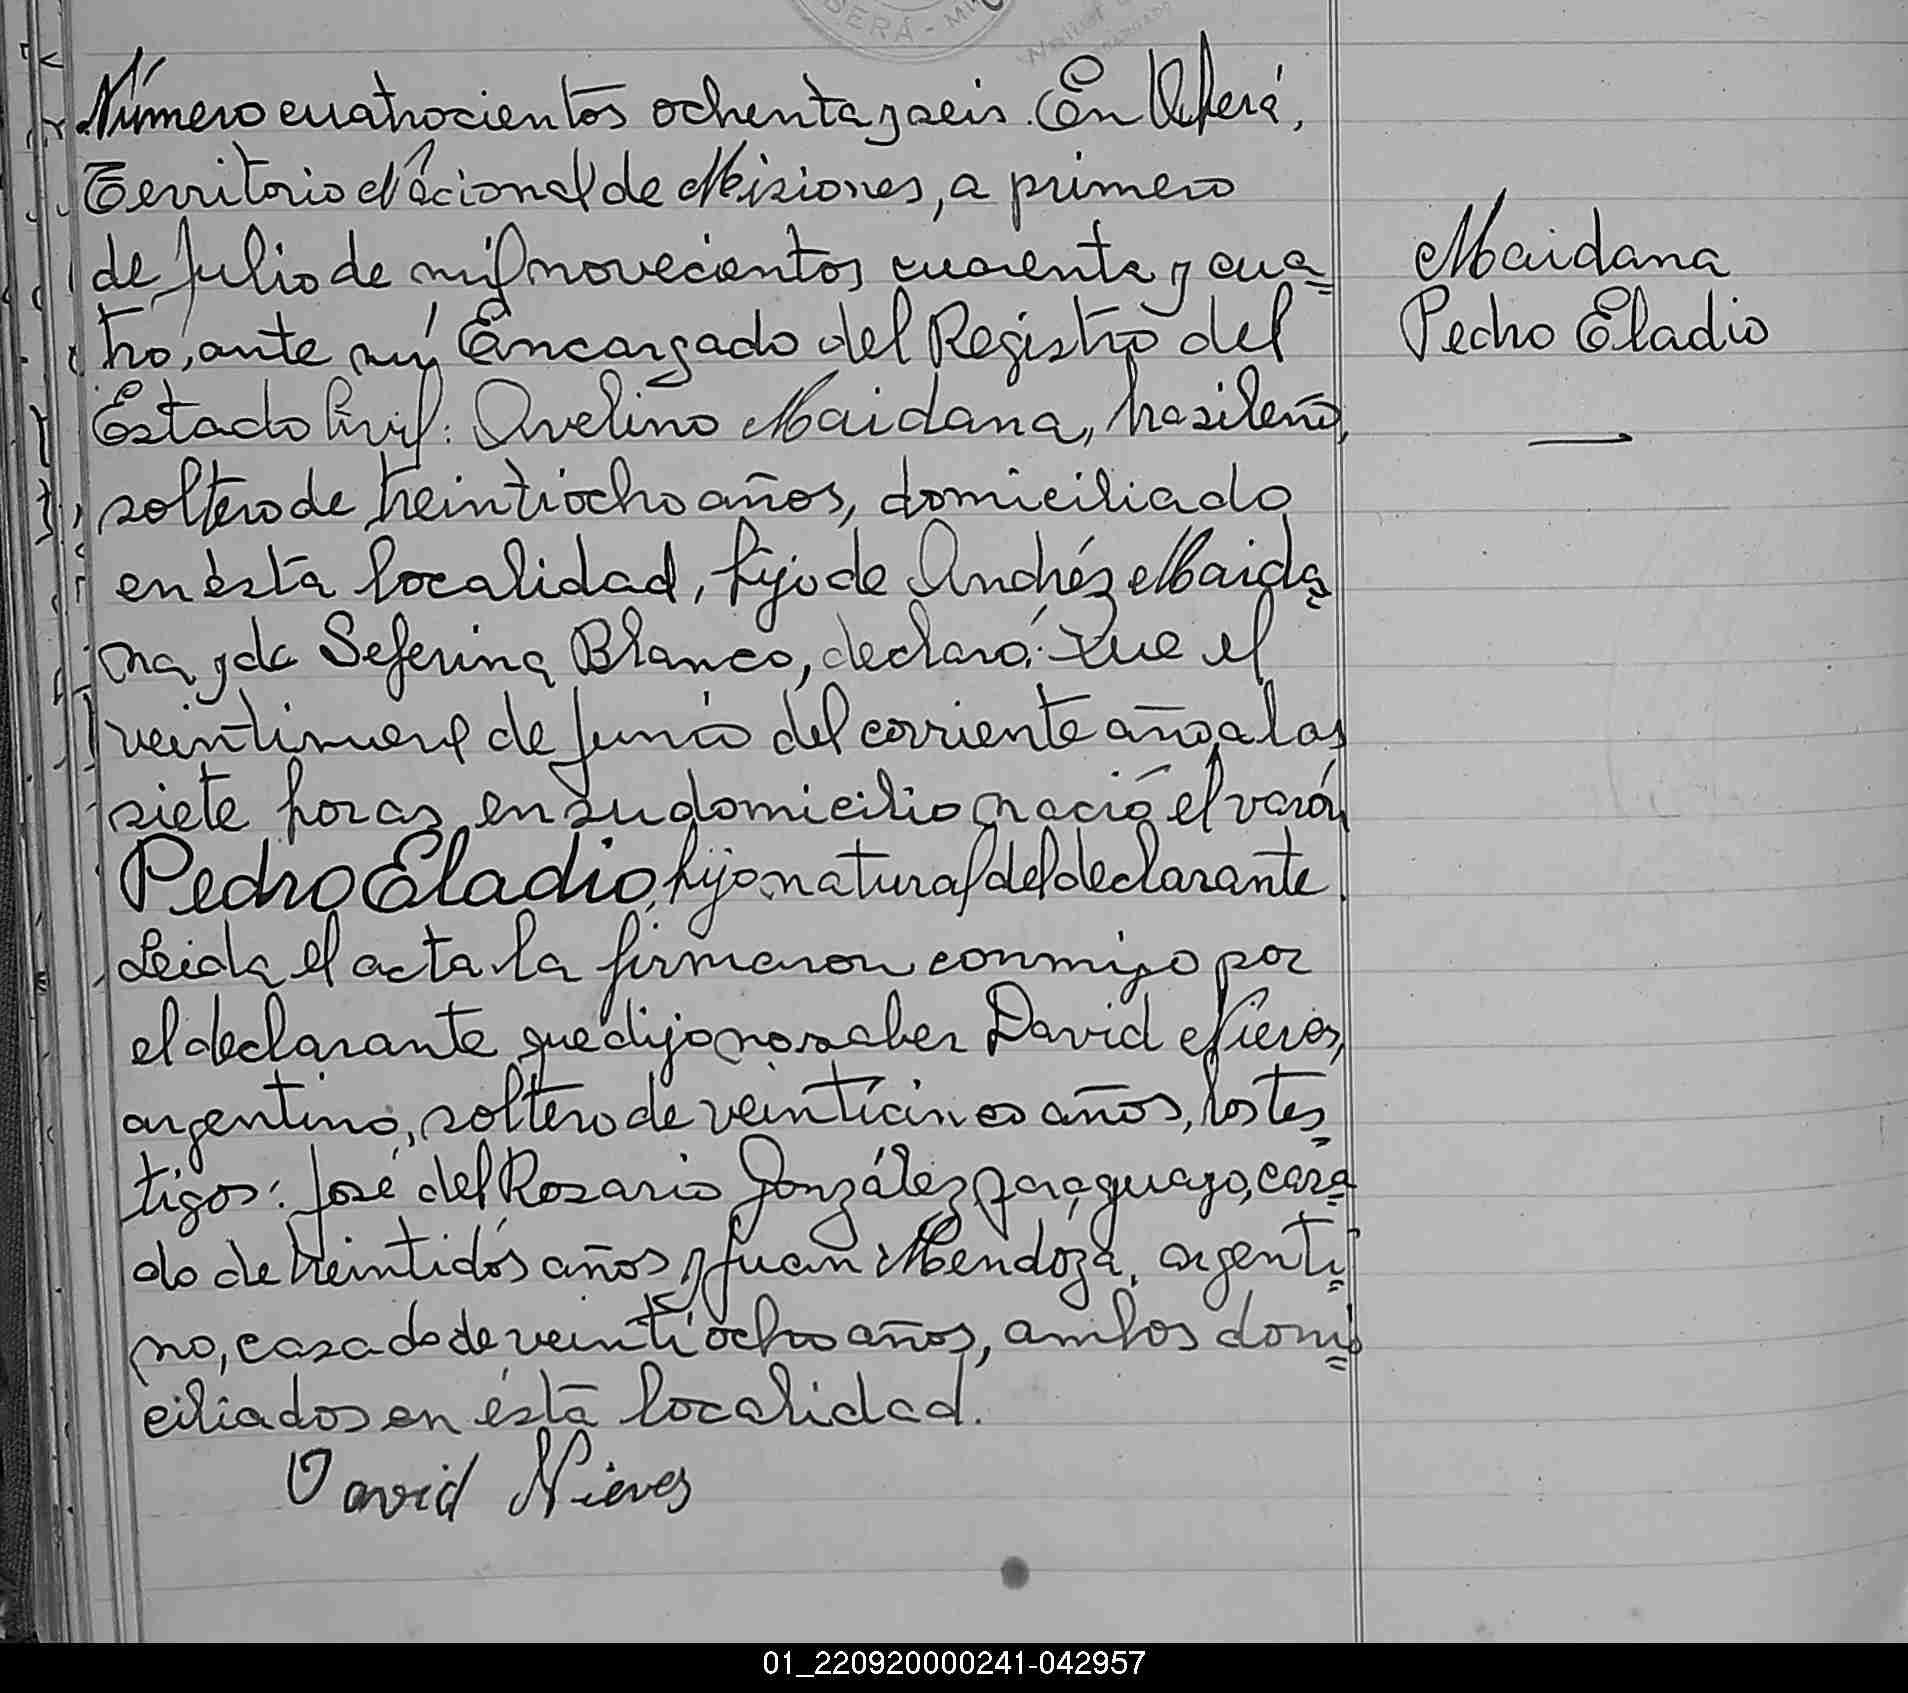 BERÁ - MI
Número cuatrocientos ochenta y seis. En Oberá,
Territorio Nacional de Misiones, a primero
de Julio de mil novecientos cuarenta y cua=
tro, ante mí Encargado del Registro del
Estado Civil: Avelino Maidana, brasileño,
soltero de treintiocho años, domiciliado
en ésta localidad, hijo de Andrés Maida=
na y de Seferina Blanco, declaró: Que el
veintinueve de Junio del corriente año, a las
siete horas en su domicilio nació el varón
Pedro Eladio, hijo natural del declarante.
Leida el acta la firmaron conmigo por
el declarante que dijo no saber David Nieves,
argentino, soltero de veinticinco años, los tes=
tigos: José del Rosario González, paraguayo, casa=
do de treintidós años y Juan Mendoza, argenti=
no, casado de veintiocho años, ambos domi=
ciliados en ésta localidad.
David Nieves
Maidana
Pedro Eladio
01_220920000241-042957